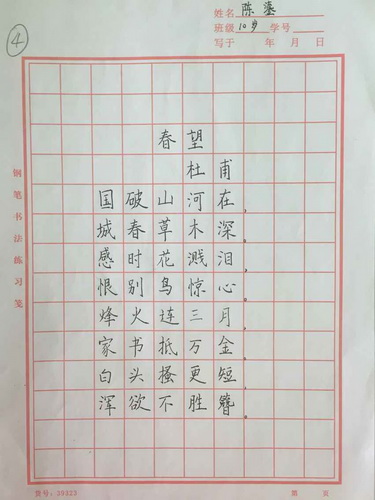 ④
姓名 陈鎏
班级 10岁 学号
写于 年 月 日
钢笔书法练习笺
春望
杜甫
国破山河在,
城春草木深。
感时花溅泪,
恨别鸟惊心。
烽火连三月,
家书抵万金。
白头搔更短,
浑欲不胜簪。
货号:39323 第 页